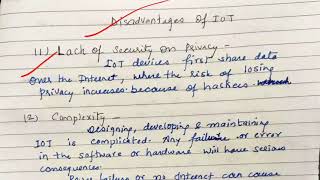 Disadvantages Of IOT
(1) Lack of Security on Privacy -
IOT devices first share data
Over the Internet, where the risk of losing
privacy increases because of hackers
(2) Complexity -
Designing, developing & maintaining
IOT is complicated. Any failure or error
in the software or hardware will have serious
consequences.
Power failure or no Internet can cause